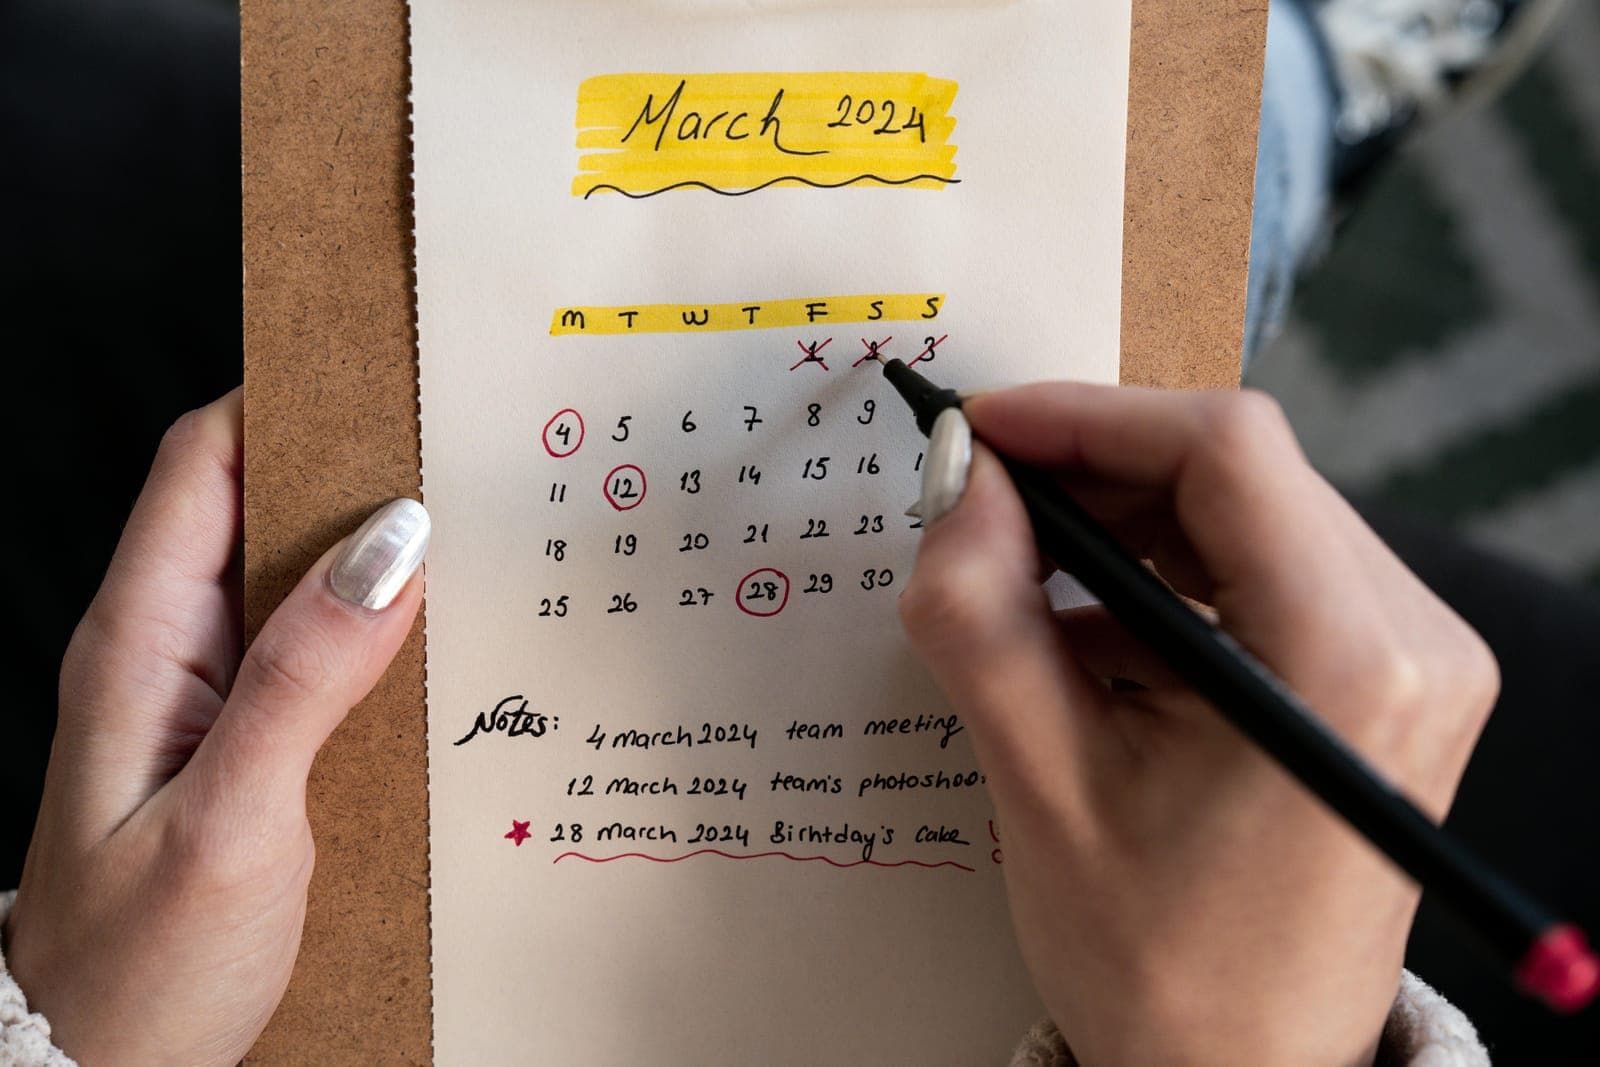 March 2024
M T W T F S S
1 2 3
4 5 6 7 8 9
11 12 13 14 15 16
18 19 20 21 22 23
25 26 27 28 29 30
Notes: 4 march 2024 team meeting
12 March 2024 team's
28 march 2024 Birhtday's cake